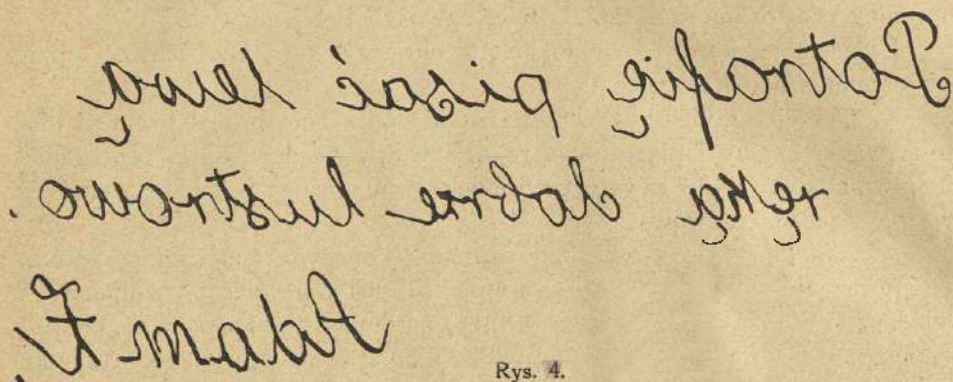 Potrafię pisać lewą
ręką dobrze lustrowo.
Adam Z.
Rys. 4.